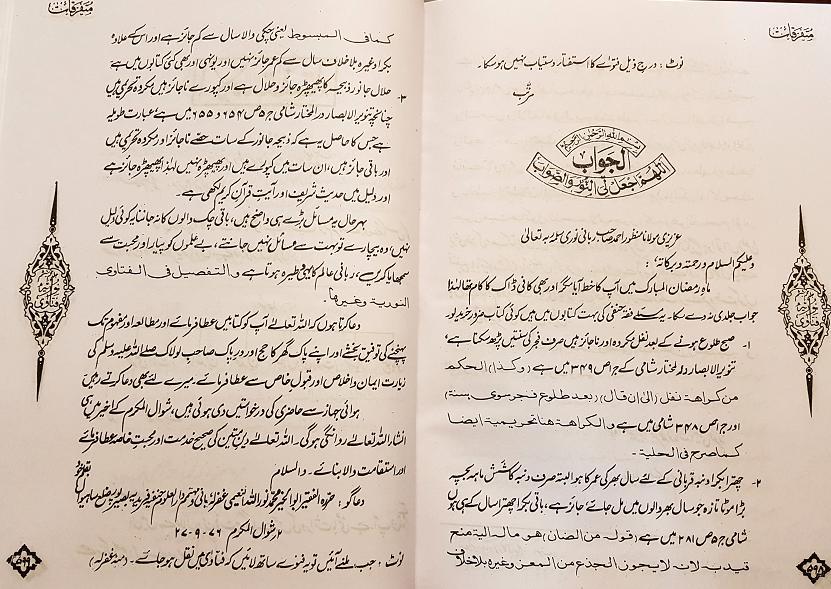 متفرقات
نوٹ : درج ذیل فتوٰے کا استفتار دستیاب نہیں ہو سکا۔
مرتّب
بسم اللہ الرحمٰن الرحیم
الجواب
اللّٰھم اجعل لی النور والصواب
عزیزی مولانا منظور احمد صاحب ربانی نوری سلمہ ربہ تعالیٰ
وعلیکم السلام ورحمتہ وبرکاتہٗ :
ماہِ رمضان المبارک میں آپ کا خط آیا مگر اور بھی کافی ڈاک کا کام تھا لہٰذا
جواب جلدی نہ دے سکا۔ یہ مسئلے فقہ حنفی کی بہت کتابوں میں ہیں کوئی کتاب ضرور خرید لو۔
۱۔ صبح طلوع ہونے کے بعد نفل مکروہ اور ناجائز ہیں صرف فجر کی سنتیں پڑھ سکتا ہے،
تنویر الابصار در المختار شامی کے ج۱ص ۳۴۹ میں ہے (وکذا) الحکم
من کراھۃ نفل (الیٰ ان قال) (بعد طلوع فجر سوی سنتہ)
اور ج۱ص ۳۴۸ شامی میں ہے والکراھۃ ھنا تحریمیۃ ایضا
کما صرح فی الحلیۃ۔
۲۔ چھترا بکرا دنبہ قربانی کے لئے سال بھر کی عمر کا ہو البتہ صرف دنبہ کا شش ماہہ بچہ
بڑا موٹا تازہ جو سال بھر والوں میں مل جائے جائز ہے، باقی بکرا چھترا سال کے ہی ہوں
شامی ج۵ص ۲۸۱ میں ہے (قولہ من الضان) ھو مالہ الیۃ منح
قید بہ لانہ لا یجوز الجذع من المعز وغیرہ بلا خلاف
۵۹۸
متفرقات
کما فی المبسوط یعنی چکی والا سال سے کم جائز ہے اور اس کے علاوہ
بکرا وغیرہ بلا خلاف سال سے کم عمر جائز نہیں اور یونہی اور بھی کئی کتابوں میں ہے
۳۔ حلال جانور ذبیحہ کا پھیپھڑہ جائز و حلال ہے اور کپورے ناجائز ہیں مکروہ تحریمی ہیں
چنانچہ تنویر الابصار در المختار شامی ج۵ص ۶۵۴ و ۶۵۵ میں ہے، عبارت طویلہ
ہے جس کا حاصل یہ ہے کہ ذبیحہ جانور کے سات حصے ناجائز اور مکروہ تحریمی ہیں
اور باقی جائز ہیں، ان سات میں کپورے ہیں اور پھیپھڑہ نہیں لہٰذا پھیپھڑہ جائز ہے
اور دلیل میں حدیث شریف اور آیت قرآن کریم لکھی ہے۔
بہر حال یہ مسائل بڑے ہی واضح ہیں، باقی چک والوں کا نہ جاننا یہ کوئی دلیل
نہیں، وہ بیچارے تو بہت سے مسائل نہیں جانتے، بے علموں کو پیار اور محبت سے
سمجھایا کریں، ربانی عالم کا یہی وطیرہ ہوتا ہے والتفصیل فی الفتاوی
النوریۃ وغیرھا۔
دعا کرتا ہوں کہ اللہ تعالےٰ آپ کو کتابیں عطا فرمائے اور مطالعہ اور مفہوم تک
پہنچنے کی توفیق بخشے اور اپنے پاک گھر کا حج اور در پاک صاحبِ لولاک صلے اللہ علیہ وسلم کی
زیارت ایمان و اخلاص اور قبولِ خاص سے عطا فرمائے، میرے لئے بھی دعا کرتے رہیں
ہوائی جہاز سے حاضری کی درخواستیں دی ہوئی ہیں، شوال المکرم کے اخیر میں ہی
انشاء اللہ تعالےٰ روانگی ہوگی۔ اللہ تعالےٰ دینِ متین کی صحیح خدمت اور محبت خاصہ عطا فرمائے
اور استقامت والا بنائے۔ والسلام
دعا گو : حرّرہ الفقیر ابو الخیر محمد نور اللہ نعیمی غفرلہٗ بانی و مہتمم دار العلوم حنفیہ فریدیہ بصیر پور ضلع ساہیوال
۲ رشوال المکرم ۷۶-۹-۲۷
نوٹ : جب ملنے آئیں تو یہ فتوے ساتھ لائیں کہ فتاوٰی میں نقل ہو جائے۔ (منہ غفرلہ)